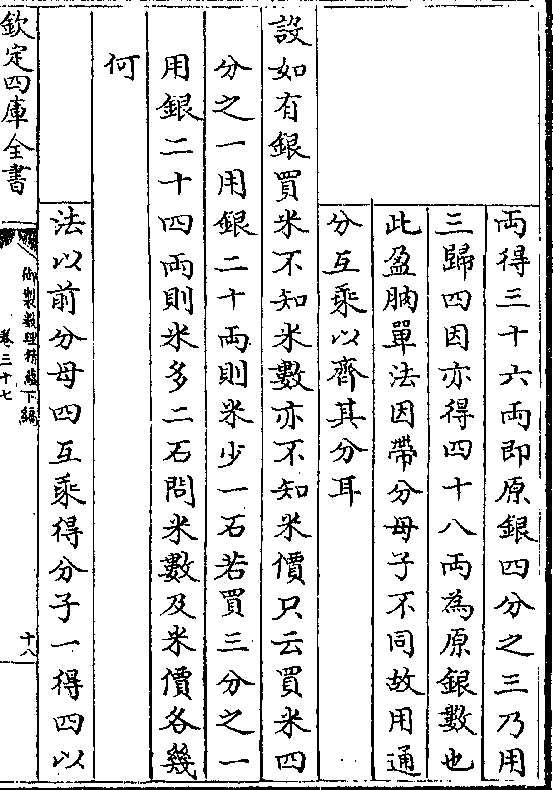 兩得三十六兩即原銀四分之三乃用
三歸四因亦得四十八兩為原銀數也
此盈朒單法因帶分母子不同故用通
分互乘以齊其分耳
設如有銀買米不知米數亦不知米價只云買米四
分之一用銀二十兩則米少一石若買三分之一
用銀二十四兩則米多二石問米數及米價各幾
何
法以前分母四互乘得分子一得四以
欽定四庫全書
御製數理精蘊下編
卷三十七
十八